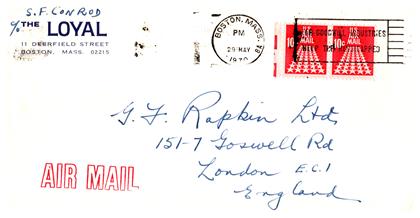 S.F. CONROD
c/o THE LOYAL
11 DEERFIELD STREET
BOSTON, MASS. 02215
BOSTON, MASS.
PM
29 MAY
1970
GOODWILL INDUSTRIES
HELP THE HANDICAPPED
10c AIR MAIL
10c AIR MAIL
G. F. Rapkin Ltd.
151-7 Goswell Rd
London E.C.1
England
AIR MAIL